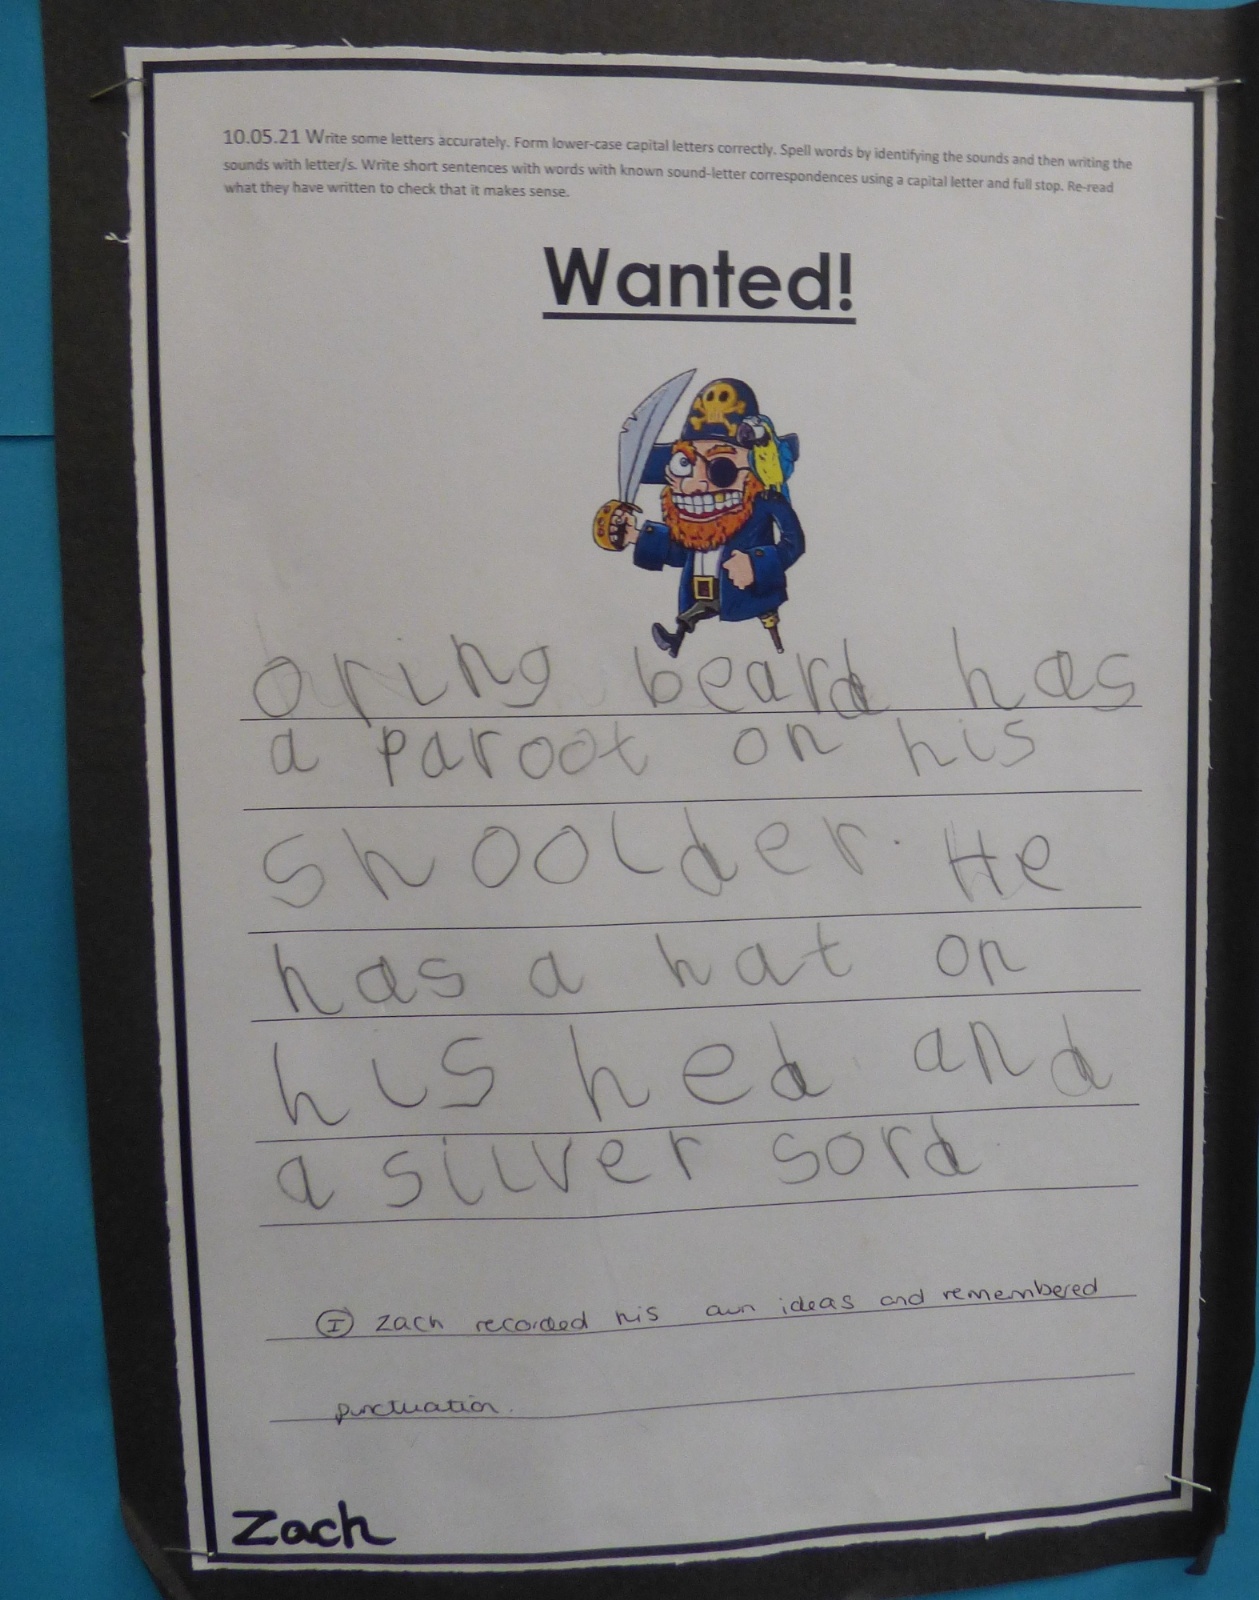 10.05.21 Write some letters accurately. Form lower-case capital letters correctly. Spell words by identifying the sounds and then writing the
sounds with letter/s. Write short sentences with words with known sound-letter correspondences using a capital letter and full stop. Re-read
what they have written to check that it makes sense.
Wanted!
oring beard has
a paroot on his
shoolder. He
has a hat on
his hed and
a silver sord
I Zach recorded his own ideas and remembered
punctuation.
Zach